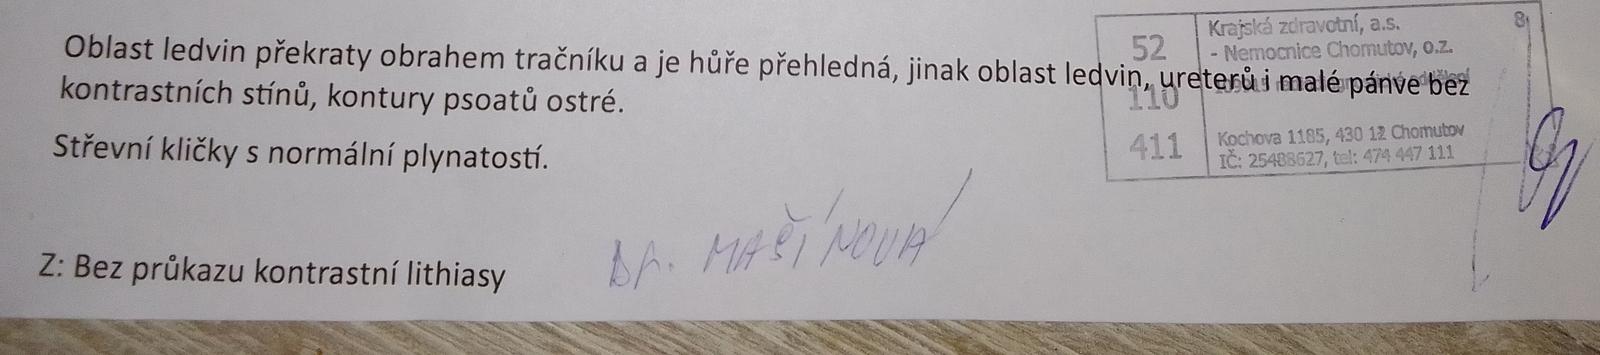 Oblast ledvin překraty obrahem tračníku a je hůře přehledná, jinak oblast ledvin, ureterů i malé pánve bez
kontrastních stínů, kontury psoatů ostré.
Střevní kličky s normální plynatostí.
Z: Bez průkazu kontrastní lithiasy
Dr. MAŠÍNOVÁ
52
110
411
Krajská zdravotní, a.s.
- Nemocnice Chomutov, o.z.
Kochova 1185, 430 12 Chomutov
IČ: 25488627, tel: 474 447 111
8